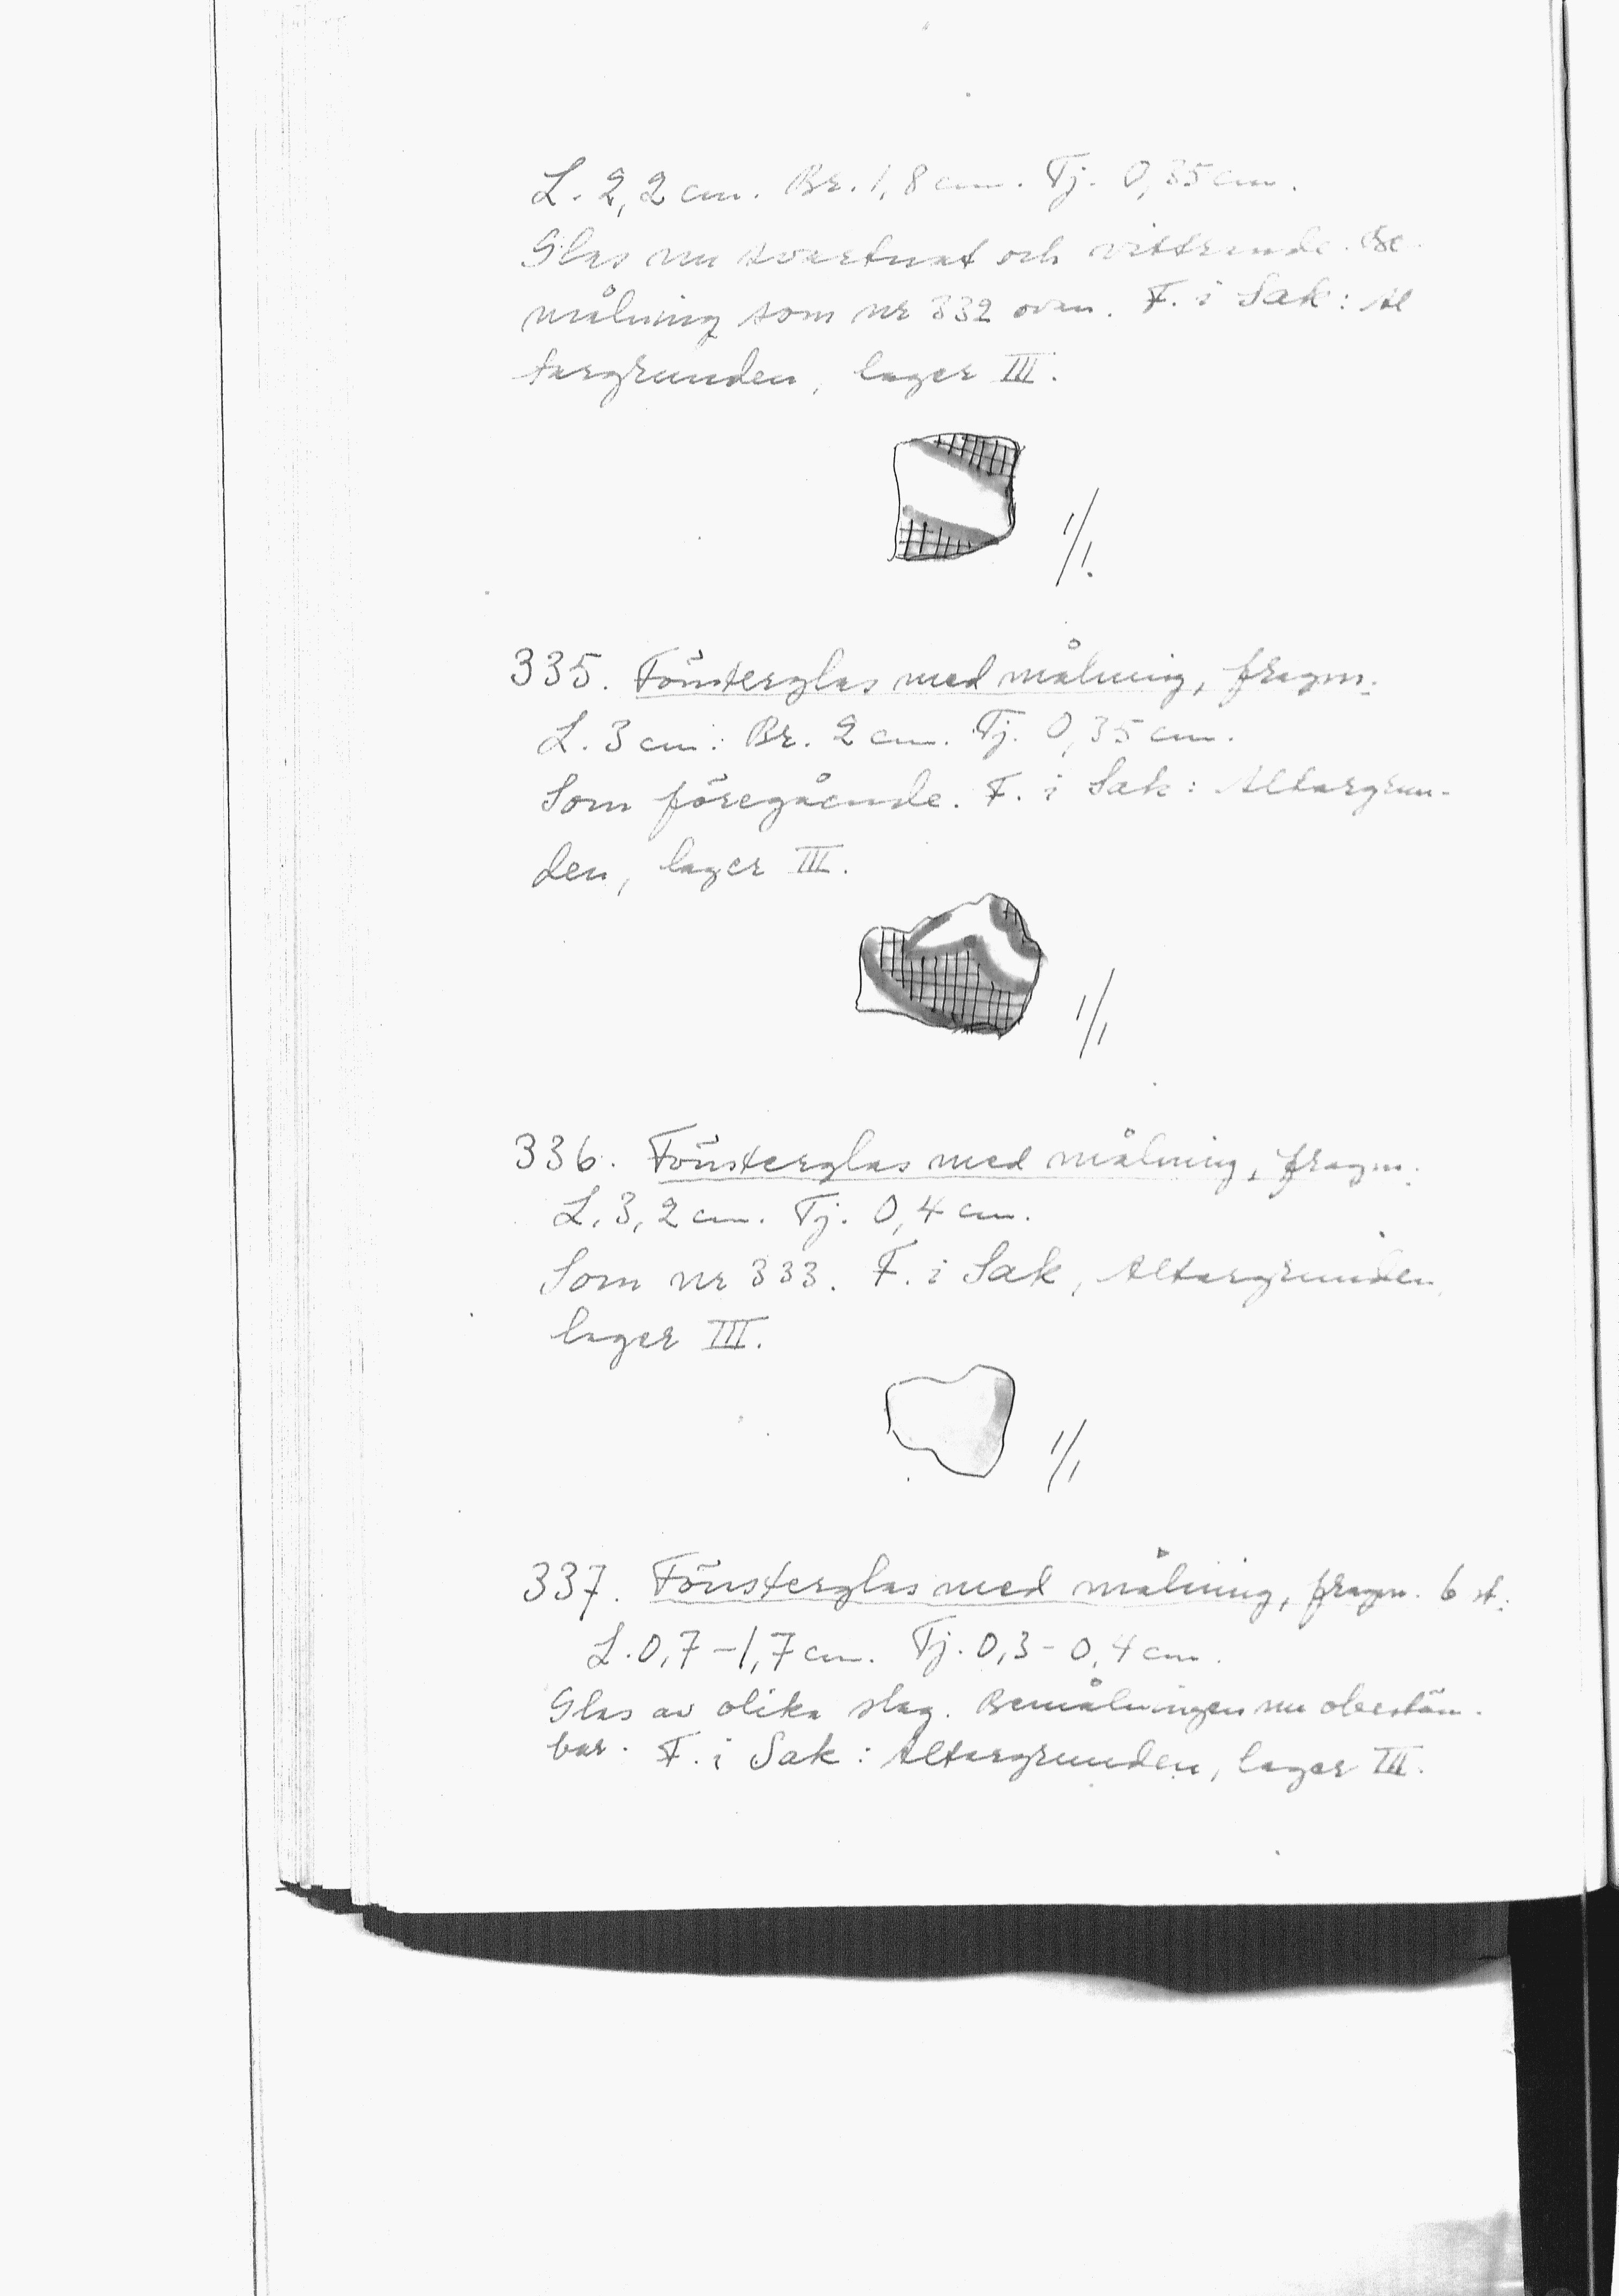 L. 2,2 cm. Br. 1,8 cm. Tj. 0,35 cm.
Glas nu svartnat och vittrande. Be
målning som nr 332 ovan. F. i Sak: Al
targrunden, lager III.
1/1.
335. Fönsterglas med målning, fragm.
L. 3 cm. Br. 2 cm. Tj. 0,35 cm.
Som föregående. F. i Sak: Altargrun-
den, lager III.
1/1
336. Fönsterglas med målning, fragm.
L. 3,2 cm. Tj. 0,4 cm.
Som nr 333. F. i Sak, Altargrunden,
lager III.
1/1
337. Fönsterglas med målning, fragm. 6 st.
L. 0,7-1,7 cm. Tj. 0,3-0,4 cm.
Glas av olika slag. Bemålningen nu obestäm-
bar. F. i Sak: Altargrunden, lager III.